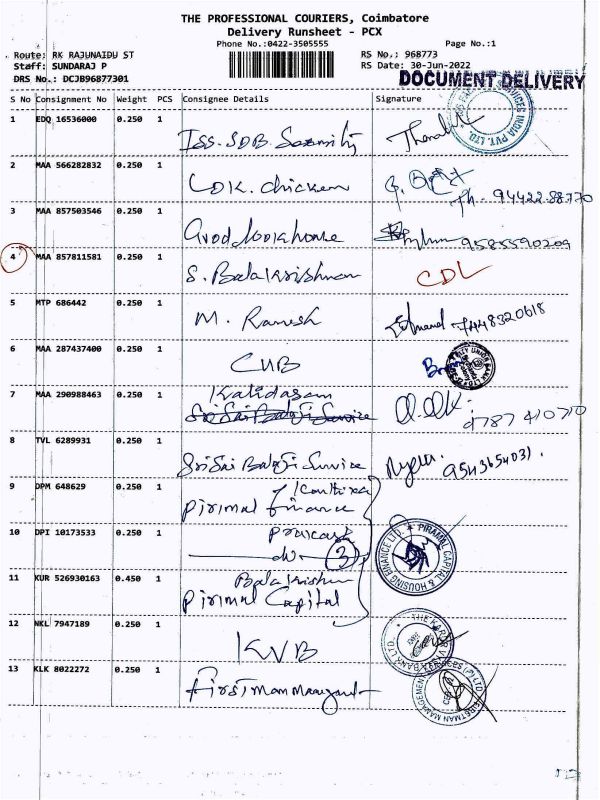 THE PROFESSIONAL COURIERS, Coimbatore
Delivery Runsheet - PCX
Phone No.:0422-3505555
Page No.:1
Route: RK RAJUNAIDU ST
RS No.: 968773
Staff: SUNDARAJ P
RS Date: 30-Jun-2022
DRS No.: DCJB96877301
DOCUMENT DELIVERY
S No Consignment No Weight PCS Consignee Details Signature
1 EDQ 16536000 0.250 1
ISS. SDB. Security
2 MAA 566282832 0.250 1
CDK. chicken
Ph - 94422 88770
3 MAA 857503546 0.250 1
9585590209
4 MAA 857811581 0.250 1
S. Balakrishnan CDL
5 MTP 686442 0.250 1
M. Ramesh Anand 7448320618
6 MAA 287437400 0.250 1
CUB
7 MAA 290988463 0.250 1
Kalidasan
Sri Sai Balaji Service
8787410710
8 TVL 6289931 0.250 1
Sri Sai Balaji Service
9 DPM 648629 0.250 1
Pirimal Finance
10 DPI 10173533 0.250 1
do 3
PIRAMAL CAPITAL & HOUSING FINANCE LTD.
11 KUR 526930163 0.450 1
Balakrishnan
Pirimal Capital
12 NKL 7947189 0.250 1
KVB
13 KLK 8022272 0.250 1